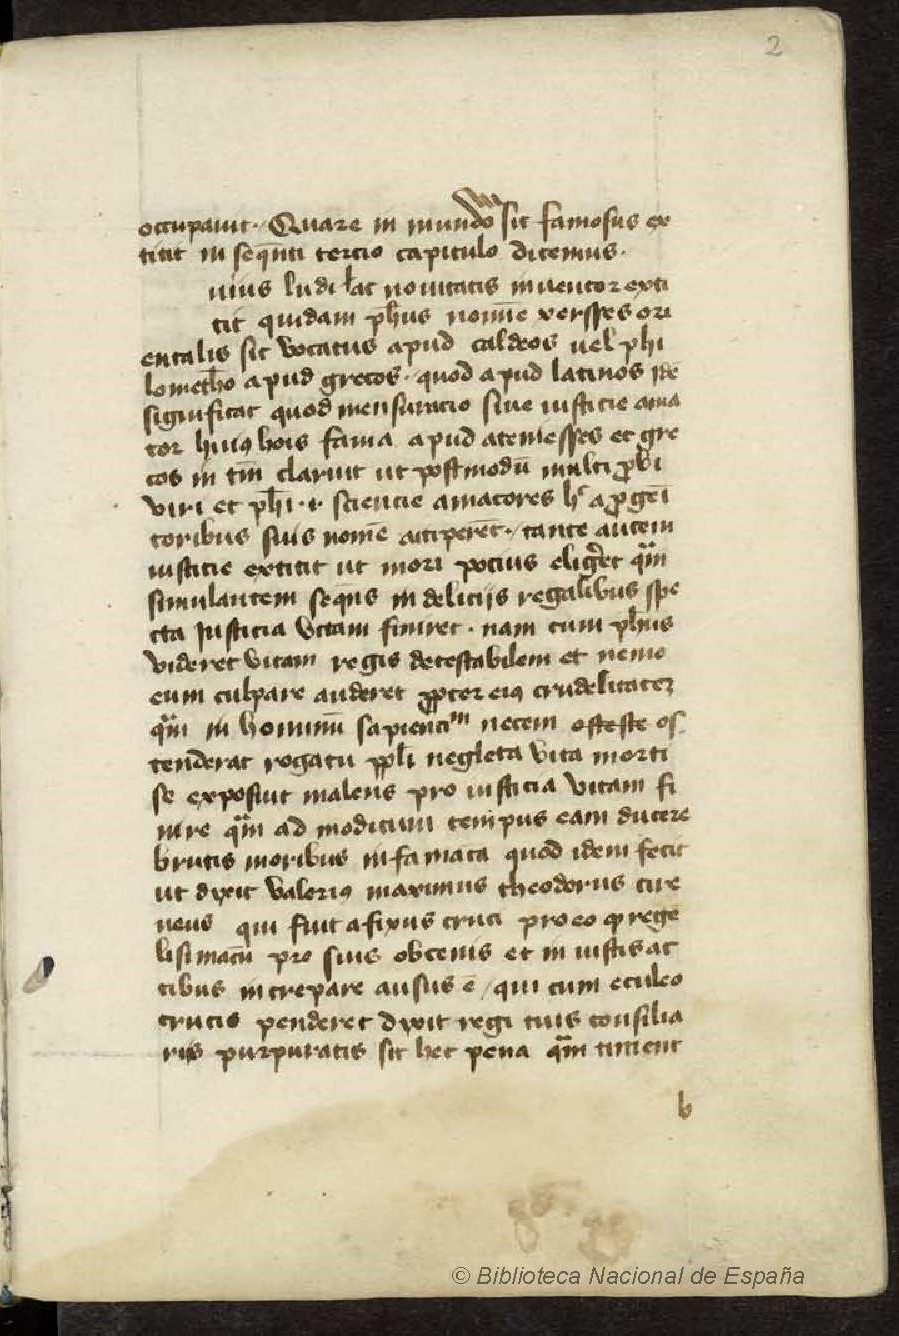 2
occupauit · Quare in mundo sit famosus ex
titit in seq̄nti tercio capitulo dicemus ·
uius ludi novitatis inuentor exti
tit quidam ph̄us nomīe xerses ori
entalis sic vocatus apud caldeos uel phi
lomet̄ho apud grecos · quod apud latinos idē
significat quod mensuracio siue iusticie ama
tor huiꝰ hōis fama apud atenieses et gre
cos in tm̄ claruit ut postmodū multi ꝓbi
viri et ph̄i · sciencie amatores a ꝓgeī
toribus suis nomē acciperēt · tante autem
iusticie extitit ut mori pocius eligeret qm̄
simulantem seq̄ns in delicijs regalibus spe
cta Justicia vitam finiret · nam cum ph̄us
videret vitam regis detestabilem et nemo
eum culpare auderet ꝓpter eiꝰ crudelitatez
qm̄ in hominū sapiencium necem os
tenderat rogatu ppl̄i neglecta vita morti
se exposuit malens pro iusticia vitam fi
nire qm̄ ad modicum tempus eam ducere
brutis moribus infamata quod idem fecit
ut dixit valeriꝰ maximus theodorus cire
neus qui fuit afixus cruci pro eo ꝙ regē
lisimacū pro suis obcenis et in iustis ac
tibus increpare ausus ē / qui cum eculeo
crucis penderet dixit regi tuis consilia
riis purpuratis sit hec pena qm̄ timent
b
© Biblioteca Nacional de España